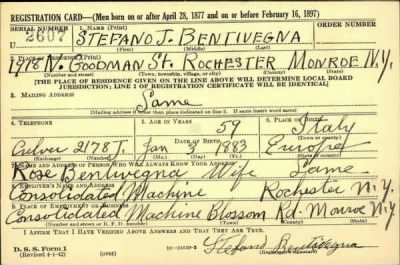 REGISTRATION CARD—(Men born on or after April 28, 1877 and on or before February 16, 1897)
SERIAL NUMBER 1. NAME (Print) ORDER NUMBER
2607 STEFANO J. BENTIVEGNA
(First) (Middle) (Last)
2. PLACE OF RESIDENCE (Print)
478 N. GOODMAN ST. ROCHESTER MONROE N.Y.
(Number and street) (Town, township, village, or city) (County) (State)
[THE PLACE OF RESIDENCE GIVEN ON THE LINE ABOVE WILL DETERMINE LOCAL BOARD
JURISDICTION; LINE 2 OF REGISTRATION CERTIFICATE WILL BE IDENTICAL]
3. MAILING ADDRESS
Same
(Mailing address if other than place indicated on line 2. If same insert word same)
4. TELEPHONE 5. AGE IN YEARS 6. PLACE OF BIRTH
59 Italy
DATE OF BIRTH
Culver 2178 J. Jan 1883 Europe
7. NAME AND ADDRESS OF PERSON WHO WILL ALWAYS KNOW YOUR ADDRESS
Rose Bentivegna Wife Same
8. EMPLOYER'S NAME AND ADDRESS
Consolidated Machine Rochester N.Y.
9. PLACE OF EMPLOYMENT OR BUSINESS
Consolidated Machine Blossom Rd. Monroe N.Y.
(Number and street or R. F. D. number) (Town) (County) (State)
I AFFIRM THAT I HAVE VERIFIED ABOVE ANSWERS AND THAT THEY ARE TRUE.
D. S. S. Form 1
(Revised 4-1-42) (over) Stefano Bentivegna